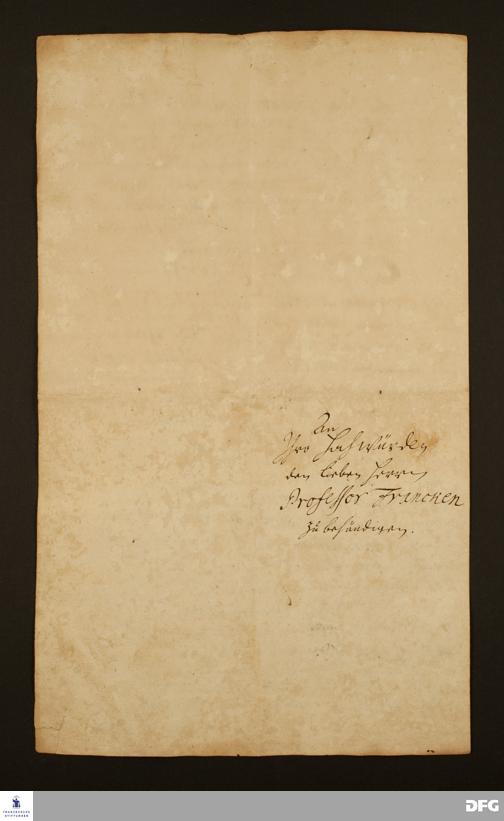 An
Ihro Hochwürden
den lieben Herrn
Professor Francken
zu behändigen.
FRANCKESCHE
STIFTUNGEN
DFG